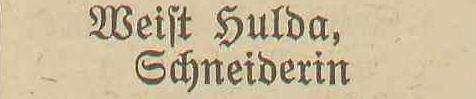 Weiſt Hulda,
Schneiderin